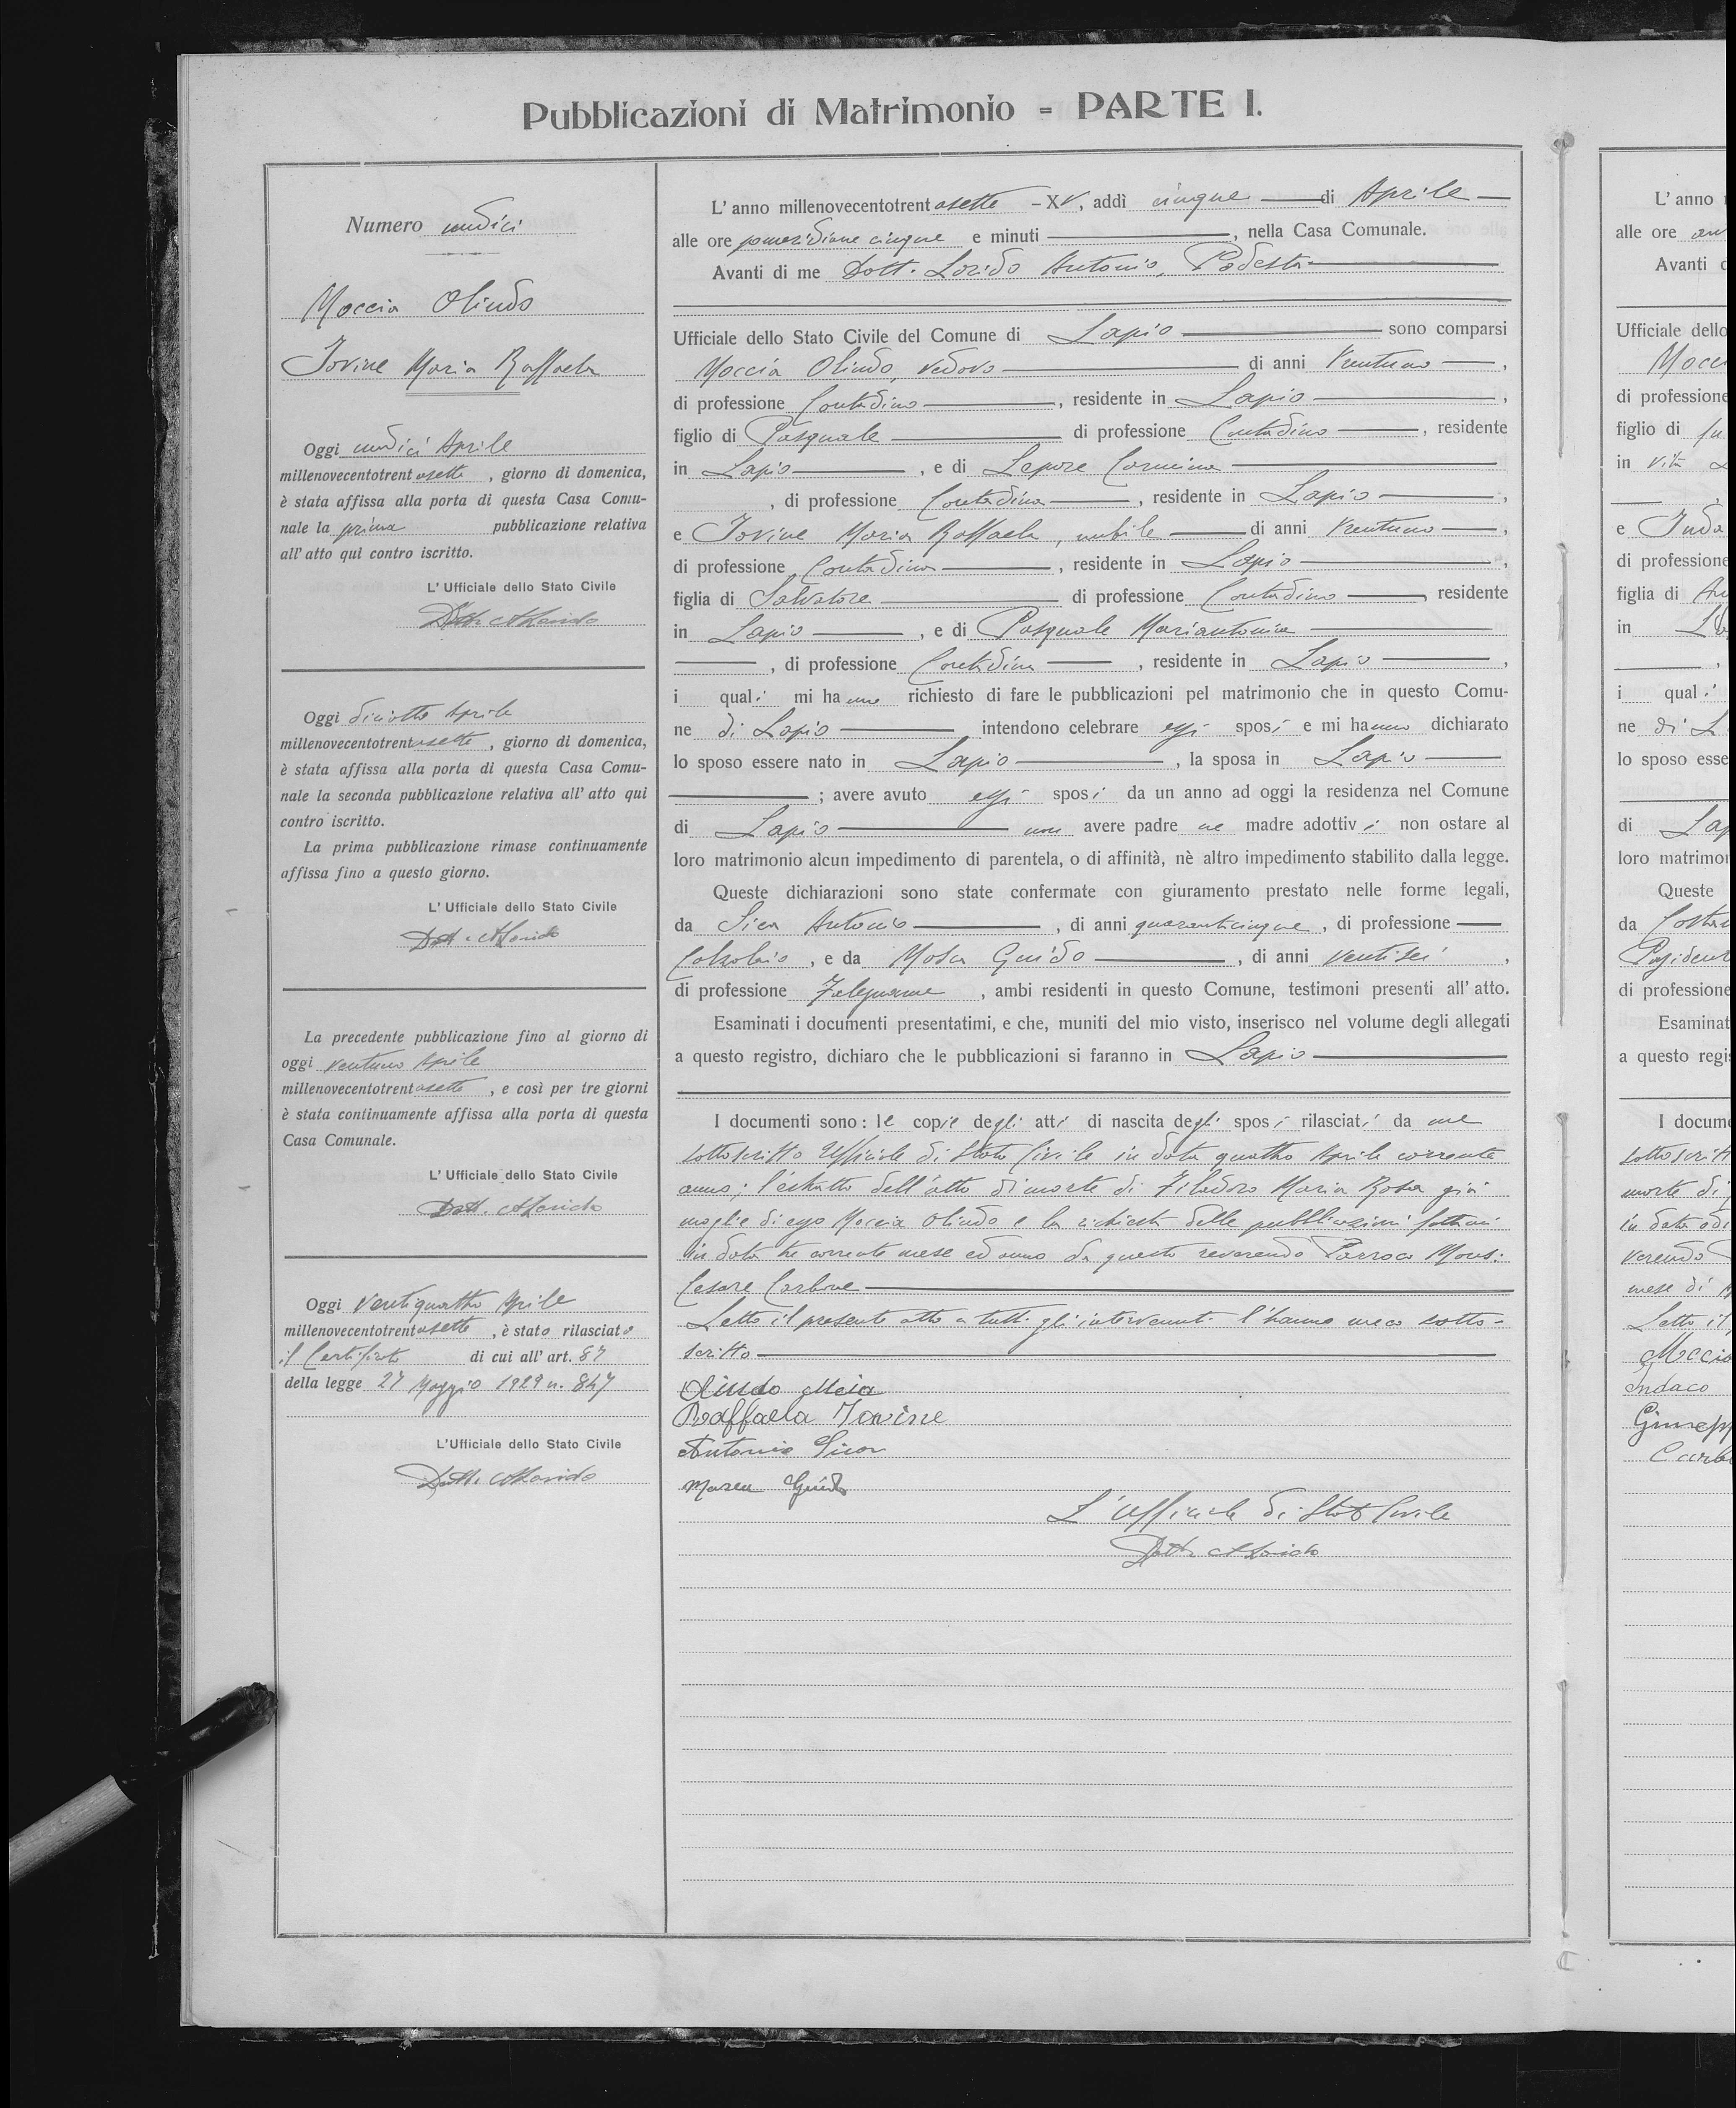 Pubblicazioni di Matrimonio - PARTE I.
Numero undici
Moccia Olindo
Iovine Maria Raffaela
Oggi undici Aprile
millenovecentotrentasette, giorno di domenica,
è stata affissa alla porta di questa Casa Comu-
nale la prima pubblicazione relativa
all'atto qui contro iscritto.
L'Ufficiale dello Stato Civile
Dott. A Lorido
Oggi diciotto Aprile
millenovecentotrentasette, giorno di domenica,
è stata affissa alla porta di questa Casa Comu-
nale la seconda pubblicazione relativa all'atto qui
contro iscritto.
La prima pubblicazione rimase continuamente
affissa fino a questo giorno.
L'Ufficiale dello Stato Civile
Dott. A Lorido
La precedente pubblicazione fino al giorno di
oggi ventuno Aprile
millenovecentotrentasette, e così per tre giorni
è stata continuamente affissa alla porta di questa
Casa Comunale.
L'Ufficiale dello Stato Civile
Dott. A Lorido
Oggi ventiquattro Aprile
millenovecentotrentasette, è stato rilasciato
il Certificato di cui all'art. 87
della legge 27 Maggio 1929 n. 847
L'Ufficiale dello Stato Civile
Dott. A Lorido
L'anno millenovecentotrentasette - XV, addì cinque di Aprile
alle ore pomeridiane cinque e minuti , nella Casa Comunale.
Avanti di me Dott. Lorido Antonio, Podestà
Ufficiale dello Stato Civile del Comune di Lapio sono comparsi
Moccia Olindo, vedovo di anni trentuno,
di professione Contadino, residente in Lapio,
figlio di Pasquale di professione Contadino, residente
in Lapio, e di Lepore Carmina
, di professione Contadina, residente in Lapio,
e Iovine Maria Raffaela, nubile di anni trentuno,
di professione Contadina, residente in Lapio,
figlia di Salvatore di professione Contadino, residente
in Lapio, e di Pasquale Mariantonia
, di professione Contadina, residente in Lapio,
i quali mi hanno richiesto di fare le pubblicazioni pel matrimonio che in questo Comu-
ne di Lapio intendono celebrare essi sposi e mi hanno dichiarato
lo sposo essere nato in Lapio, la sposa in Lapio
; avere avuto essi sposi da un anno ad oggi la residenza nel Comune
di Lapio non avere padre ne madre adottivi non ostare al
loro matrimonio alcun impedimento di parentela, o di affinità, nè altro impedimento stabilito dalla legge.
Queste dichiarazioni sono state confermate con giuramento prestato nelle forme legali,
da Sica Antonio, di anni quarantacinque, di professione
Calzolaio, e da Mosca Guido, di anni ventisei,
di professione Falegname, ambi residenti in questo Comune, testimoni presenti all'atto.
Esaminati i documenti presentatimi, e che, muniti del mio visto, inserisco nel volume degli allegati
a questo registro, dichiaro che le pubblicazioni si faranno in Lapio
I documenti sono: le copie degli atti di nascita degli sposi rilasciati da me
sottoscritto Ufficiale di Stato Civile in data quattro Aprile corrente
anno; l'estratto dell'atto di morte di Filadoro Maria Rosa già
moglie di esso Moccia Olindo e la richiesta delle pubblicazioni fattami
in data tre corrente mese ed anno da questo reverendo Parroco Mons:
Cesare Carbone
Letto il presente atto a tutti gli intervenuti l'hanno meco sotto-
scritto
Olindo
Raffaela Iovine
Antonio Sica
Guido
L'Ufficiale di Stato Civile
Dott. A Lorido
L'anno
alle ore
Avanti
Ufficiale dello
di professione
figlio di
in
e
di professione
figlia di
in
i quali
ne di
lo sposo esse
di
loro matrimo
Queste
da
di professione
Esaminat
a questo regi
I docum